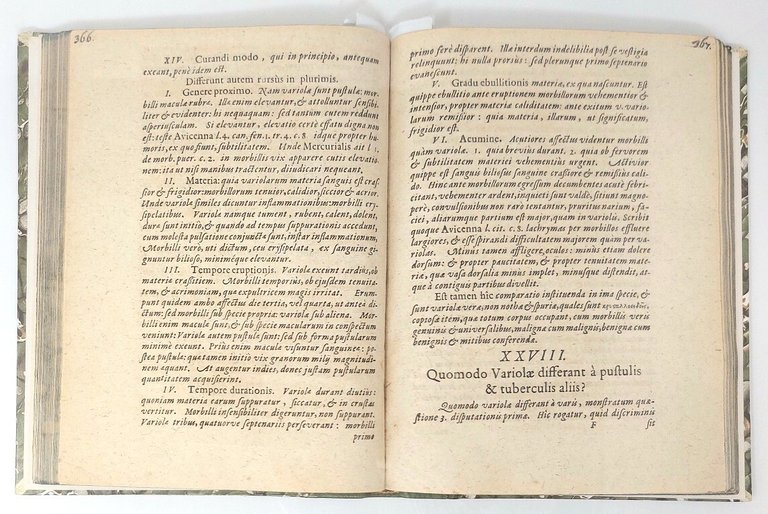 366.
XIV. Curandi modo, qui in principio, antequam
exeant, penè idem est.
Differunt autem rursùs in plurimis.
I. Genere proximo. Nam variolæ sunt pustulæ: mor-
billi maculæ rubræ. Illæ enim elevantur, & attolluntur sensibi-
liter & evidenter: hi nequaquam: sed tantum cutem reddunt
aspertusculam. Si elevantur, elevatio certè effatu digna non
est: teste Avicenna l. 4. can. fen. 1. tr. 4. c. 8. idque propter hu-
moris, ex quo fiunt, subtilitatem. Unde Mercurialis ait l. 1.
de morb. puer. c. 2. in morbillis vix apparere cutis elevatio-
nem: ita ut nisi manibus tractentur, dijudicari nequeant.
II. Materia: quia variolarum materia sanguis est cras-
sior & frigidior: morbillorum tenuior, calidior, siccior & acrior.
Unde variolæ similes dicuntur inflammationibus: morbilli ery-
sipelatibus. Variolæ namque tument, rubent, calent, dolent,
duræ sunt initio, & quando ad tempus suppurationis accedunt,
cum molesta pulsatione conjunctæ sunt, instar inflammationum.
Morbilli verò, ut dictum, ceu erysipelata, ex sanguine gi-
gnuntur bilioso, minimeque elevantur.
III. Tempore eruptionis. Variolæ exeunt tardiùs, ob
materiæ crassitiem. Morbilli temporiùs, ob ejusdem tenuita-
tem, & acrimoniam, quæ expultricem magis irritat. Erum-
punt quidem ambo affectus die tertia, vel quarta, ut anteà di-
ctum: sed morbilli sub specie propria: variolæ sub aliena. Mor-
billi enim maculæ sunt, & sub specie macularum in conspectum
veniunt: Variolæ autem pustulæ sunt: sed sub forma pustularum
minimè exeunt. Priùs enim maculæ visuntur sanguineæ: po-
stea pustulæ: quæ tamen initio vix granorum milij magnitudi-
nem æquant. At augentur indies, donec justam pustularum
quantitatem acquisiverint.
IV. Tempore durationis. Variolæ durant diutiùs:
quoniam materia earum suppuratur, siccatur, & in crustas
vertitur. Morbilli insensibiliter digeruntur, non suppurant.
Variolæ tribus, quatuorve septenariis perseverant: morbilli
primo
367.
primo ferè disparent. Illæ interdum indelibilia post se vestigia
relinquunt: hi nulla prorsùs: sed plerunque primo septenario
evanescunt.
V. Gradu ebullitionis materiæ, ex qua nascuntur. Est
quippe ebullitio ante eruptionem morbillorum vehementior &
intensior, propter materiæ caliditatem: ante exitum v. vario-
larum remissior: quia materia, illarum, ut significatum,
frigidior est.
VI. Acumine. Acutiores affectus videntur morbilli
quàm variolæ. 1. quia breviùs durant. 2. quia ob fervorem
& subtilitatem materiei vehementiùs urgent. Activior
quippe est sanguis biliosus sanguine crassiore & remissiùs cali-
do. Hinc ante morbillorum egressum decumbentes acutè febri-
citant, vehementer ardent, inquieti sunt valdè, sitiunt magno-
perè, convulsionibus non rarò tentantur, pruritus narium, fa-
ciei, aliarumque partium est major, quam in variolis. Scribit
quoque Avicenna l. cit. c. 8. lachrymas per morbillos effluere
largiores, & esse spirandi difficultatem majorem quàm per va-
riolas. Minùs tamen affligere, oculos: minùs etiam dolere
dorsum: & propter paucitatem, & propter tenuitatem mate-
riæ, quæ vasa dorsalia minùs implet, minusque distendit, at-
que à contiguis partibus divellit.
Est tamen hic comparatio instituenda in ima specie, &
sunt variolæ veræ, non nothæ & spuriæ, quales sunt
coptosæ item, quæ totum corpus occupant, cum morbillis veris
genuinis & universalibus, maligna cum malignis, benigna cum
benignis & mitibus conferendæ.
XXVIII.
Quomodo Variolæ differant à pustulis
& tuberculis aliis?
Quomodo variolæ differant à varis, monstratum quæ-
stione 3. disputationis primæ. Hîc rogatur, quid discriminis
F sit